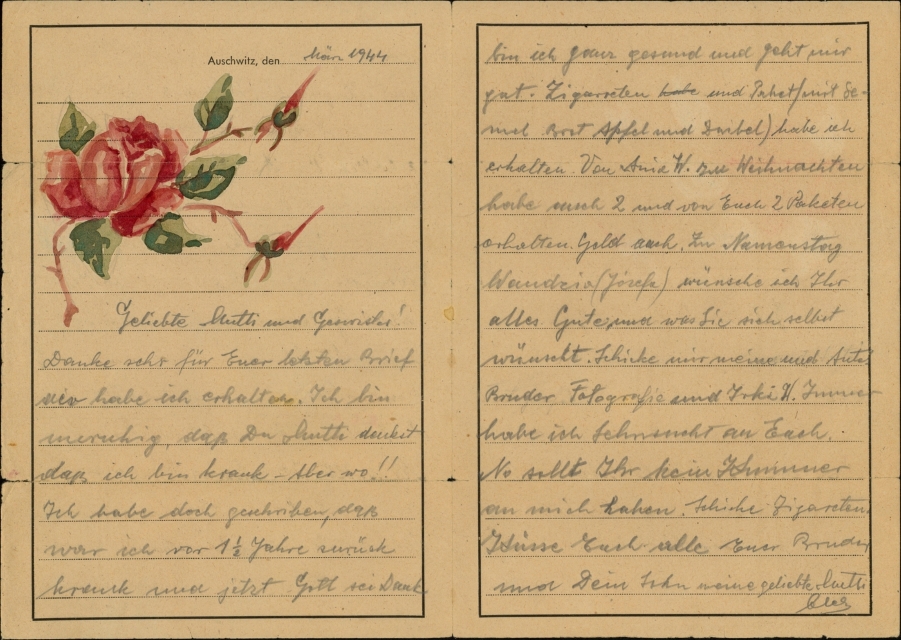 Auschwitz, den März 1944
Geliebte Mutti und
Danke sehr für Euer letzten Brief
habe ich erhalten. Ich bin
unruhig, daß Du Mutti denkst
daß ich bin krank – Aber wo!!
Ich habe doch geschrieben, daß
war ich vor 1½ Jahre zurück
krank und jetzt Gott sei Dank
bin ich ganz gesund und geht mir
gut. Zigarreten habe und Paket (mit Se-
mel Brot Apfel und ) habe ich
erhalten. Von Ania W. zu Weihnachten
habe auch 2 und von Euch 2 Paketen
erhalten. Geld auch. Zu Namenstag
Wandzia (Józefa) wünsche ich Ihr
alles Gute und was Sie sich selbst
wünscht. Schicke mir meine und
Bruder Fotografie und Irki W. Immer
habe ich Sehnsucht an Euch.
No sollt Ihr kein Kummer
an mich haben. Schicke Zigareten.
Küsse Euch alle Euer Bruder
und Dein Sohn meine geliebte Mutti